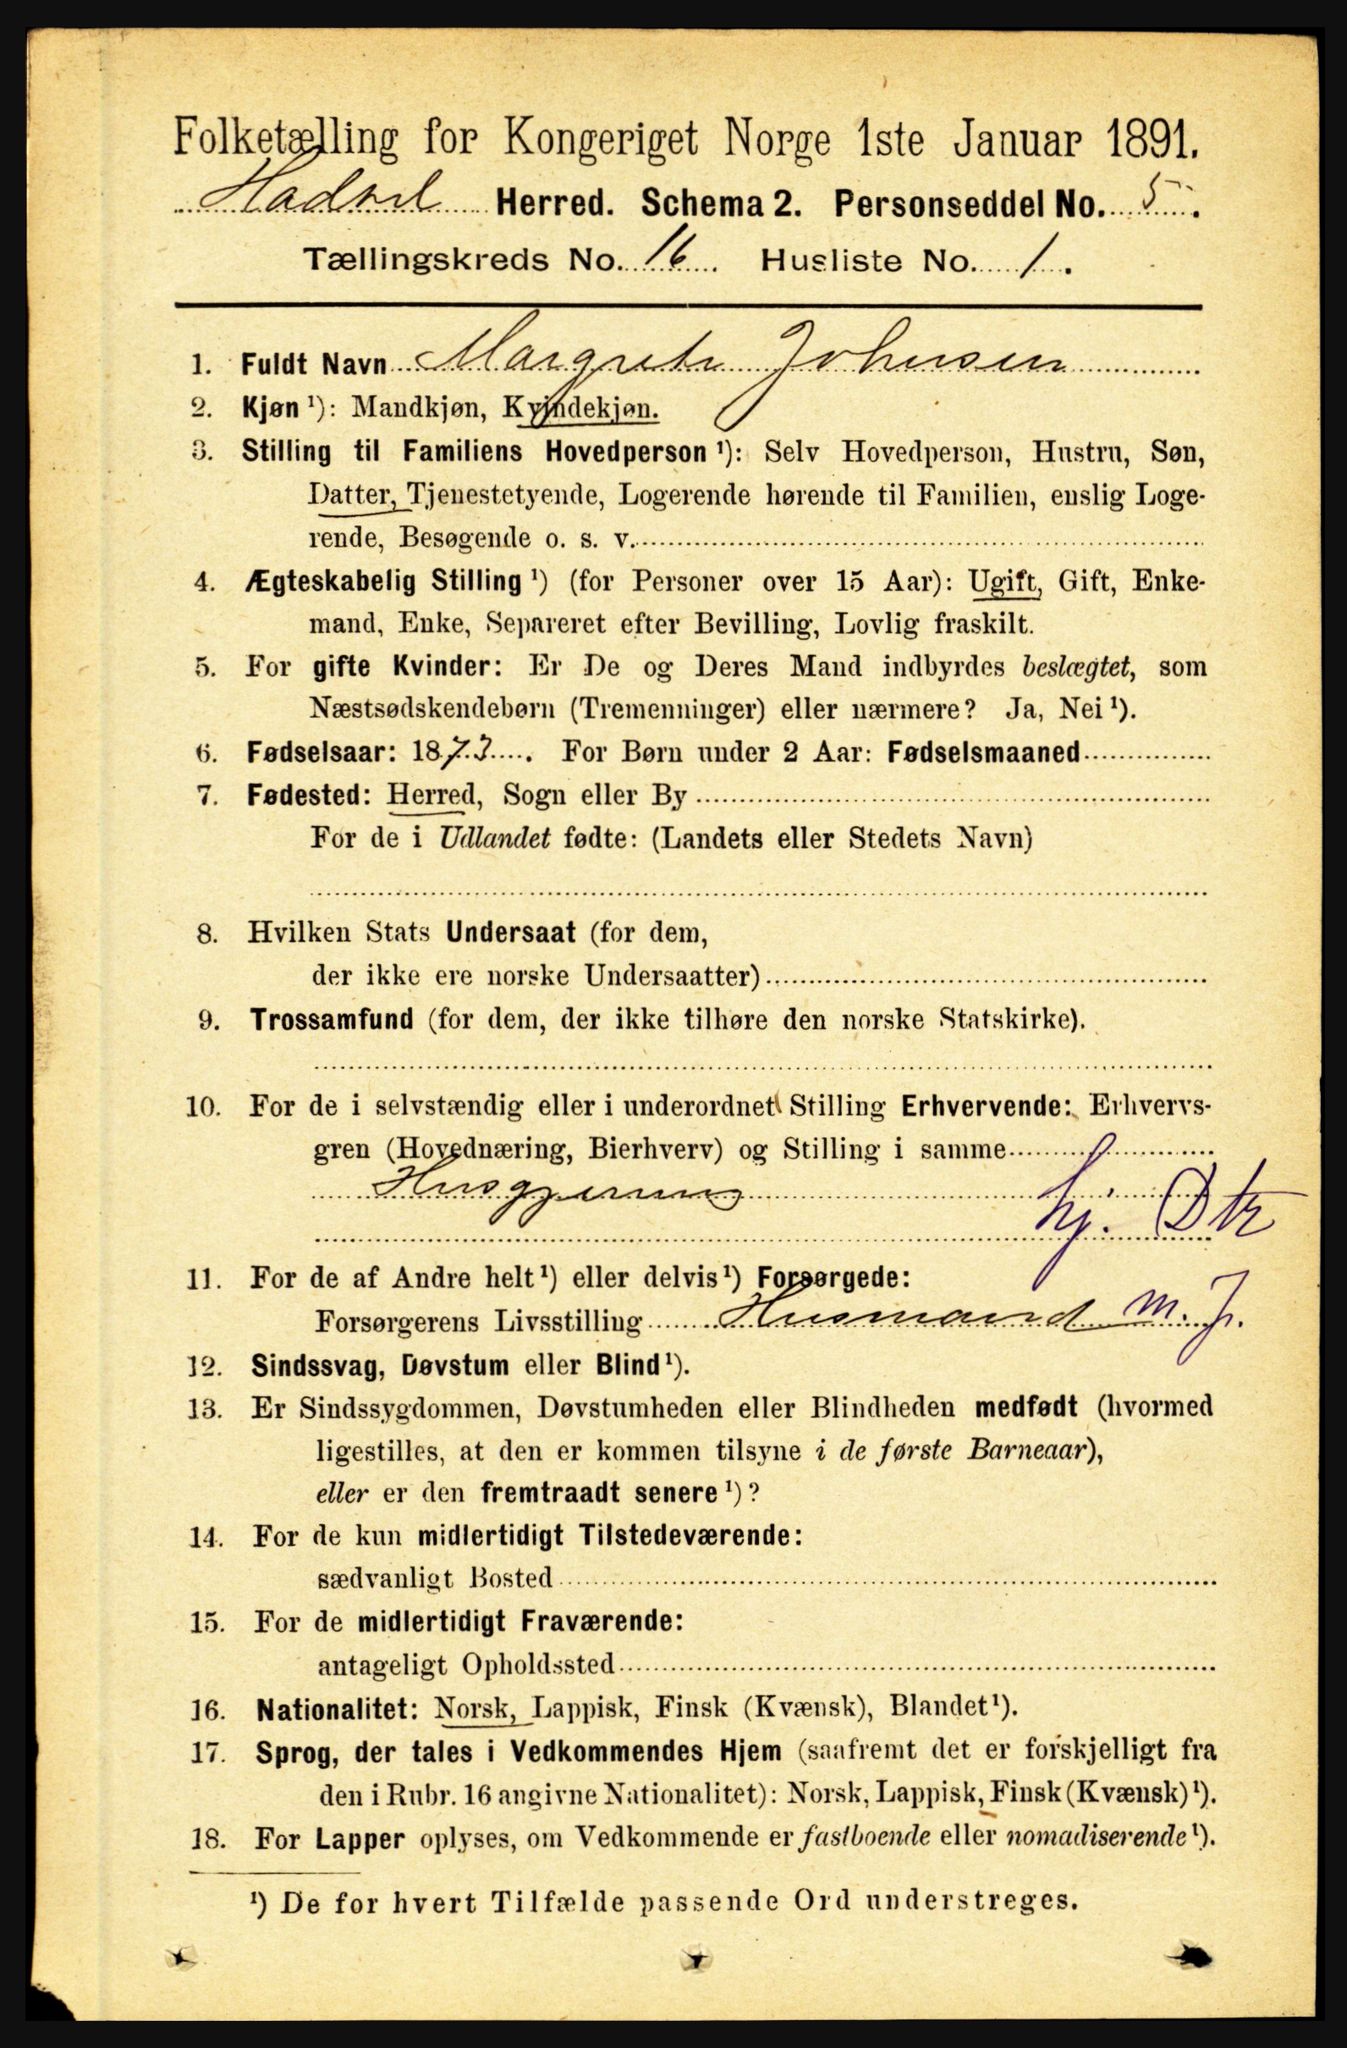 Folketælling for Kongeriget Norge 1ste Januar 1891.
Hadsel Herred. Schema 2. Personseddel No. 5.
Tællingskreds No. 16. Husliste No. 1.
1. Fuldt Navn Margrete Johnsen
2. Kjøn ¹): Mandkjøn, Kvindekjøn.
3. Stilling til Familiens Hovedperson ¹): Selv Hovedperson, Hustru, Søn,
Datter, Tjenestetyende, Logerende hørende til Familien, enslig Loge-
rende, Besøgende o. s. v.
4. Ægteskabelig Stilling ¹) (for Personer over 15 Aar): Ugift, Gift, Enke-
mand, Enke, Separeret efter Bevilling, Lovlig fraskilt.
5. For gifte Kvinder: Er De og Deres Mand indbyrdes beslægtet, som
Næstsødskendebørn (Tremenninger) eller nærmere? Ja, Nei ¹).
6. Fødselsaar: 1873. For Børn under 2 Aar: Fødselsmaaned
7. Fødested: Herred, Sogn eller By
For de i Udlandet fødte: (Landets eller Stedets Navn)
8. Hvilken Stats Undersaat (for dem,
der ikke ere norske Undersaatter)
9. Trossamfund (for dem, der ikke tilhøre den norske Statskirke).
10. For de i selvstændig eller i underordnet Stilling Erhvervende: Erhvervs-
gren (Hovednæring, Bierhverv) og Stilling i samme
Husgjerning
hj. Dtr
11. For de af Andre helt ¹) eller delvis ¹) Forsørgede:
Forsørgerens Livsstilling Husmand m. J.
12. Sindssvag, Døvstum eller Blind ¹).
13. Er Sindssygdommen, Døvstumheden eller Blindheden medfødt (hvormed
ligestilles, at den er kommen tilsyne i de første Barneaar),
eller er den fremtraadt senere ¹)?
14. For de kun midlertidigt Tilstedeværende:
sædvanligt Bosted
15. For de midlertidigt Fraværende:
antageligt Opholdssted
16. Nationalitet: Norsk, Lappisk, Finsk (Kvænsk), Blandet ¹).
17. Sprog, der tales i Vedkommendes Hjem (saafremt det er forskjelligt fra
den i Rubr. 16 angivne Nationalitet): Norsk, Lappisk, Finsk (Kvænsk) ¹).
18. For Lapper oplyses, om Vedkommende er fastboende eller nomadiserende ¹).
¹) De for hvert Tilfælde passende Ord understreges.